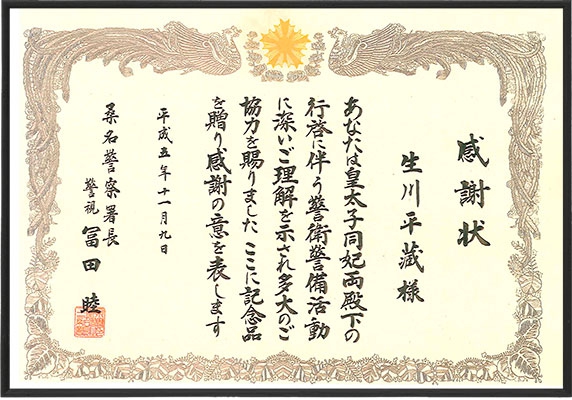 感謝状
生川平蔵様
あなたは皇太子同妃両殿下の
行啓に伴う警衛警備活動
に深いご理解を示され多大のご
協力を賜りました ここに記念品
を贈り感謝の意を表します
平成五年十一月九日
桑名警察署長
警視 冨田 睦